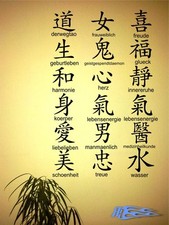 道 女 喜
derwegtao frauweiblich freude
生 鬼 福
geburtleben geistgespenstdaemon glueck
和 心 靜
harmonie herz innereruhe
身 氣 氣
koerper lebensenergie lebensenergie
愛 男 醫
liebelieben manmaenlich medizinheilkunde
美 忠 水
schoenheit treue wasser